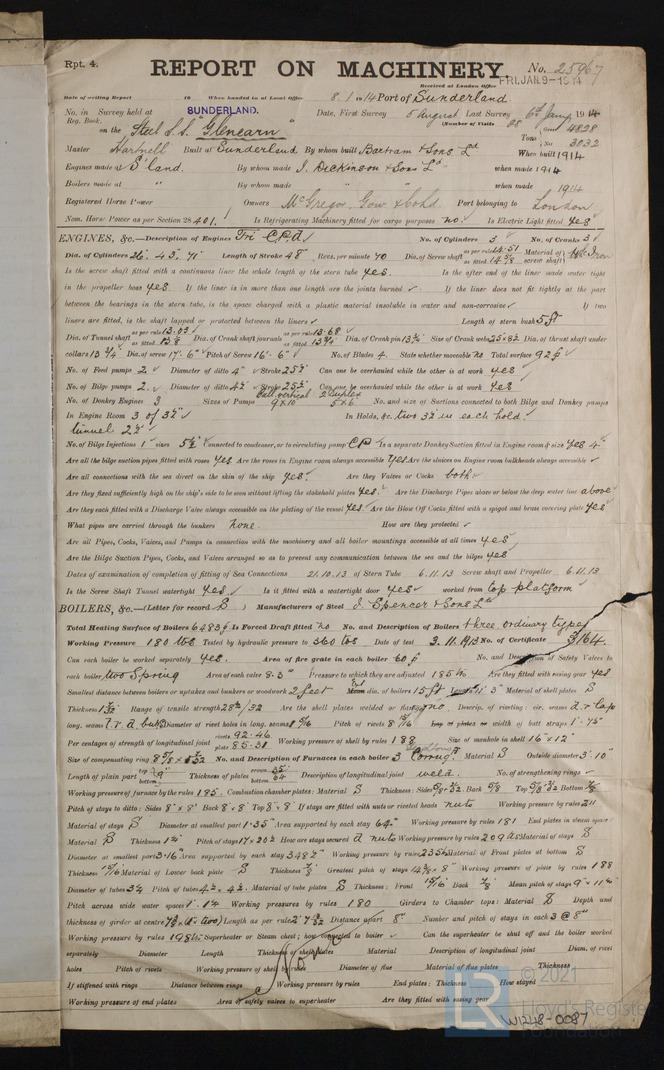 Rpt. 4.
REPORT ON MACHINERY. No. 25967
Received at London Office FRI. JAN. 9 - 1914
Date of writing Report 19 When handed in at Local Office 8. 1. 1914 Port of Sunderland
No. in Survey held at SUNDERLAND. Date, First Survey 5 August Last Survey 6th Jany 1914
Reg. Book. (Number of Visits
on the Steel S.S. "Glenearn" Tons 4828 3032
Master Hartnell Built at Sunderland By whom built Bartram & Sons Ld When built 1914
Engines made at S'land. By whom made J. Dickinson & Sons Ld when made 1914
Boilers made at " By whom made " when made 1914
Registered Horse Power Owners McGregor Gow & Co Ld Port belonging to London
Nom. Horse Power as per Section 28 401. Is Refrigerating Machinery fitted for cargo purposes no. Is Electric Light fitted yes
ENGINES, &c.—Description of Engines Tri Cpd No. of Cylinders 3 No. of Cranks 3
Dia. of Cylinders 26" 43" 71" Length of Stroke 48" Revs. per minute 70 Dia. of Screw shaft as per rule 14.51 as fitted Material of screw shaft Iron
Is the screw shaft fitted with a continuous liner the whole length of the stern tube yes. Is the after end of the liner made water tight
in the propeller boss yes. If the liner is in more than one length are the joints burned ✓ If the liner does not fit tightly at the part
between the bearings in the stern tube, is the space charged with a plastic material insoluble in water and non-corrosive ✓ If two
liners are fitted, is the shaft lapped or protected between the liners ✓ Length of stern bush 5 ft
Dia. of Tunnel shaft as per rule 13.03 as fitted Dia. of Crank shaft journals as per rule 13.68 as fitted 13¾" Dia. of Crank pin 13¾" Size of Crank webs Dia. of thrust shaft under
collars 13¾" Dia. of screw 17'. 6" Pitch of Screw 16'. 6" No. of Blades 4. State whether moveable no Total surface 92
No. of Feed pumps 2 Diameter of ditto 4" Stroke 25½" Can one be overhauled while the other is at work yes
No. of Bilge pumps 2. Diameter of ditto 4½" Stroke 25½" Can one be overhauled while the other is at work yes
No. of Donkey Engines 3 Sizes of Pumps 9 x 10 5 x 6 No. and size of Suctions connected to both Bilge and Donkey pumps
In Engine Room 3 of 3½" In Holds, &c. two 3½" in each hold.
tunnel 2½"
No. of Bilge Injections 1 sizes 5½" Connected to condenser, or to circulating pump CP Is a separate Donkey Suction fitted in Engine room & size yes 4"
Are all the bilge suction pipes fitted with roses yes Are the roses in Engine room always accessible yes Are the sluices on Engine room bulkheads always accessible ✓
Are all connections with the sea direct on the skin of the ship yes. Are they Valves or Cocks both
Are they fixed sufficiently high on the ship's side to be seen without lifting the stokehold plates yes. Are the Discharge Pipes above or below the deep water line above
Are they each fitted with a Discharge Valve always accessible on the plating of the vessel yes. Are the Blow Off Cocks fitted with a spigot and brass covering plate yes
What pipes are carried through the bunkers none. How are they protected ✓
Are all Pipes, Cocks, Valves, and Pumps in connection with the machinery and all boiler mountings accessible at all times yes
Are the Bilge Suction Pipes, Cocks, and Valves arranged so as to prevent any communication between the sea and the bilges yes
Dates of examination of completion of fitting of Sea Connections 21.10.13 of Stern Tube 6.11.13 Screw shaft and Propeller 6.11.13
Is the Screw Shaft Tunnel watertight yes Is it fitted with a watertight door yes worked from top platform
BOILERS, &c.—(Letter for record S ) Manufacturers of Steel J. Spencer & Sons Ld
Total Heating Surface of Boilers 6483 Is Forced Draft fitted no No. and Description of Boilers three ordinary type
Working Pressure 180 lbs Tested by hydraulic pressure to 360 lbs Date of test 3.11.1913 No. of Certificate 3164.
Can each boiler be worked separately yes. Area of fire grate in each boiler 60 No. and Description of Safety Valves to
each boiler two Spring Area of each valve 8.3" Pressure to which they are adjusted 185 lbs Are they fitted with easing gear yes
Smallest distance between boilers or uptakes and bunkers or woodwork 2 feet dia. of boilers 15 ft Length 11' 3" Material of shell plates S
Thickness Range of tensile strength 28/32 Are the shell plates welded or flanged no. Descrip. of riveting: cir. seams d.r. lap
long. seams t.r.d. butt Diameter of rivet holes in long. seams Pitch of rivets Lap of plates or width of butt straps 1'. 7½"
Per centages of strength of longitudinal joint rivets 92.46 plate 85.31 Working pressure of shell by rules 188 Size of manhole in shell 16" x 12"
Size of compensating ring No. and Description of Furnaces in each boiler 3 Corrug. Material S Outside diameter 3'. 10"
Length of plain part top bottom Thickness of plates crown bottom Description of longitudinal joint weld. No. of strengthening rings ✓
Working pressure of furnace by the rules 185. Combustion chamber plates: Material S Thickness: Sides Back Top Bottom
Pitch of stays to ditto: Sides 8" x 8" Back 8" x 8" Top 8" x 8" If stays are fitted with nuts or riveted heads nuts Working pressure by rules 211
Material of stays S Diameter at smallest part 1.35" Area supported by each stay 64" Working pressure by rules 181 End plates in steam space:
Material S Thickness Pitch of stays How are stays secured d nuts Working pressure by rules 209 Material of stays S
Diameter at smallest part 3.16" Area supported by each stay 348 Working pressure by rules 235 Material of Front plates at bottom S
Thickness Material of Lower back plate S Thickness Greatest pitch of stays Working pressure of plate by rules 188
Diameter of tubes 3¼ Pitch of tubes 4½ x 4½. Material of tube plates S Thickness: Front 15/16 Back 7/8 Mean pitch of stays
Pitch across wide water spaces 1'. 14" Working pressures by rules 180 Girders to Chamber tops: Material S Depth and
thickness of girder at centre Length as per rule Distance apart 8" Number and pitch of stays in each 3 @ 8"
Working pressure by rules 198 lbs Superheater or Steam chest; how connected to boiler ✓ Can the superheater be shut off and the boiler worked
separately Diameter Length Thickness of shell plates Material Description of longitudinal joint Diam. of rivet
holes Pitch of rivets Working pressure of shell by rules Diameter of flue Material of flue plates Thickness
If stiffened with rings Distance between rings Working pressure by rules End plates: Thickness How stayed
Working pressure of end plates Area of safety valves to superheater Are they fitted with easing gear
None
© 2021
Lloyd's Register
Foundation
W1248-0087